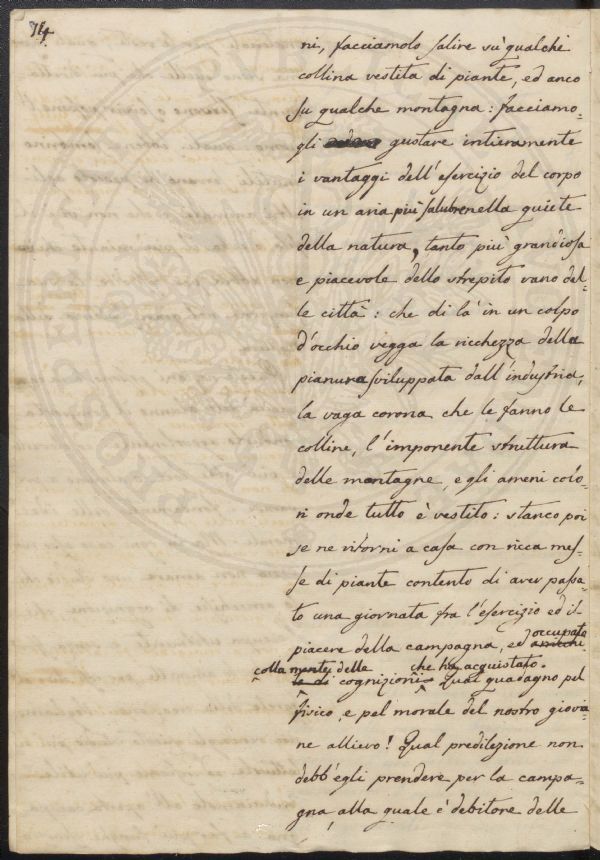 74.
ni, facciamolo salire su qualche
collina vestita di piante, ed anco
su qualche montagna: facciamo=
gli gustare intieramente
i vantaggi dell'esercizio del corpo
in un aria più salubre nella quiete
della natura, tanto più grandiosa
e piacevole dello strepito vano del=
le città: che di là in un colpo
d'occhio vegga la ricchezza della
pianura sviluppata dall'industria,
la vaga corona che le fanno le
colline, l'imponente struttura
delle montagne, e gli ameni colo=
ri onde tutto è vestito: stanco poi
se ne ritorni a casa con ricca mes=
se di piante contento di aver passa=
to una giornata fra l'esercizio ed il
piacere della campagna, ed occupata
colla mente delle cognizioni che ha acquistato. Qual guadagno pel
fisico, e pel morale del nostro giova=
ne allievo! Qual predilezione non
debb'egli prendere per la campa=
gna, alla quale è debitore delle